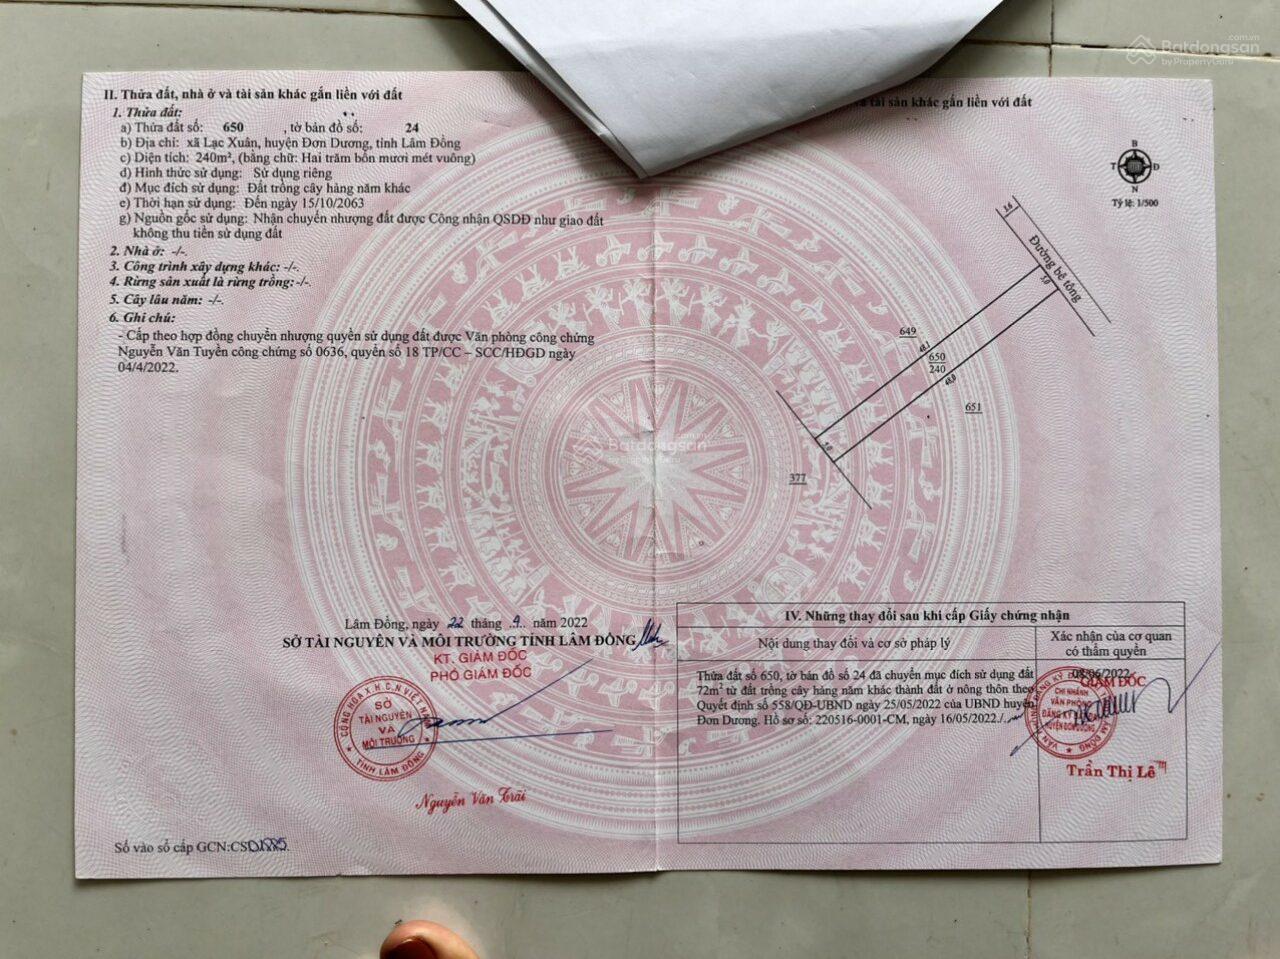 II. Thửa đất, nhà ở và tài sản khác gắn liền với đất
1. Thửa đất:
a) Thửa đất số: 650 , tờ bản đồ số: 24
b) Địa chỉ: xã Lạc Xuân, huyện Đơn Dương, tỉnh Lâm Đồng
c) Diện tích: 240m², (bằng chữ: Hai trăm bốn mươi mét vuông)
d) Hình thức sử dụng: Sử dụng riêng
đ) Mục đích sử dụng: Đất trồng cây hàng năm khác
e) Thời hạn sử dụng: Đến ngày 15/10/2063
g) Nguồn gốc sử dụng: Nhận chuyển nhượng đất được Công nhận QSDĐ như giao đất
không thu tiền sử dụng đất
2. Nhà ở: -/-.
3. Công trình xây dựng khác: -/-.
4. Rừng sản xuất là rừng trồng: -/-.
5. Cây lâu năm: -/-.
6. Ghi chú:
- Cấp theo hợp đồng chuyển nhượng quyền sử dụng đất được Văn phòng công chứng
Nguyễn Văn Tuyền công chứng số 0636, quyển số 18 TP/CC – SCC/HĐGD ngày
04/4/2022.
Lâm Đồng, ngày 22 tháng 4 năm 2022
SỞ TÀI NGUYÊN VÀ MÔI TRƯỜNG TỈNH LÂM ĐỒNG
KT. GIÁM ĐỐC
PHÓ GIÁM ĐỐC
CỘNG HÒA X.H.C.N VIỆT NAM
SỞ
TÀI NGUYÊN
VÀ
MÔI TRƯỜNG
★ TỈNH LÂM ĐỒNG ★
Nguyễn Văn Trãi
Số vào sổ cấp GCN:CS
tài sản khác gắn liền với đất
B
T Đ
N
Tỷ lệ: 1/500
3.6
Đường bê tông
5.0
649
48.1
650
240
48.0
651
5.0
377
IV. Những thay đổi sau khi cấp Giấy chứng nhận
Nội dung thay đổi và cơ sở pháp lý
Xác nhận của cơ quan
có thẩm quyền
Thửa đất số 650, tờ bản đồ số 24 đã chuyển mục đích sử dụng đất
72m² từ đất trồng cây hàng năm khác thành đất ở nông thôn theo
Quyết định số 558/QĐ-UBND ngày 25/05/2022 của UBND huyện
Đơn Dương. Hồ sơ số: 220516-0001-CM, ngày 16/05/2022./.
08/06/2022
GIÁM ĐỐC
CHI NHÁNH
VĂN PHÒNG
ĐĂNG KÝ ĐẤT ĐAI
HUYỆN ĐƠN DƯƠNG
Trần Thị Lê
Batdongsan.com.vn
by PropertyGuru
Batdongsan.com.vn
by PropertyGuru